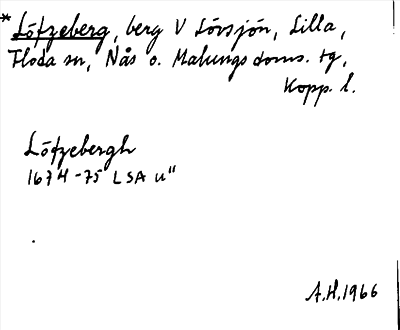 *Löfzeberg, berg V Lövsjön, Lilla,
Floda sn, Nås o. Malungs doms. tg,
Kopp. l.
Löfzebergh
1674-75 LSA u"
A.H. 1966